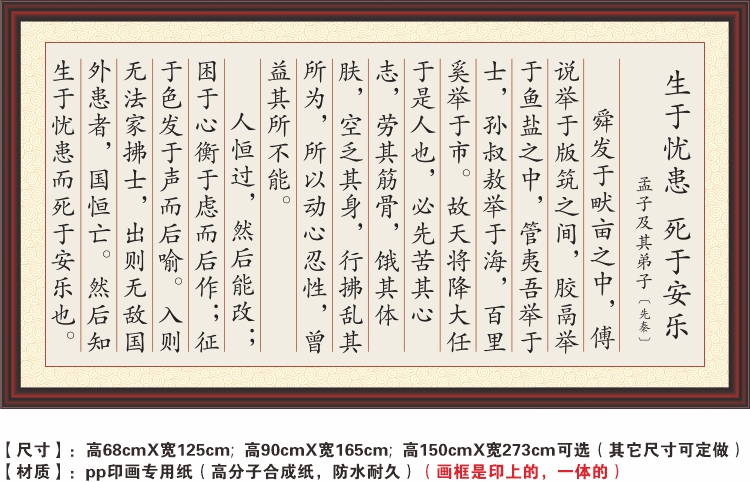 生于忧患 死于安乐
孟子及其弟子〔先秦〕
舜发于畎亩之中，傅
说举于版筑之间，胶鬲举
于鱼盐之中，管夷吾举于
士，孙叔敖举于海，百里
奚举于市。故天将降大任
于是人也，必先苦其心
志，劳其筋骨，饿其体
肤，空乏其身，行拂乱其
所为，所以动心忍性，曾
益其所不能。
人恒过，然后能改；
困于心衡于虑而后作；征
于色发于声而后喻。入则
无法家拂士，出则无敌国
外患者，国恒亡。然后知
生于忧患而死于安乐也。
【尺寸】：高68cmX宽125cm; 高90cmX宽165cm; 高150cmX宽273cm可选（其它尺寸可定做）
【材质】：pp印画专用纸（高分子合成纸，防水耐久）（画框是印上的，一体的）